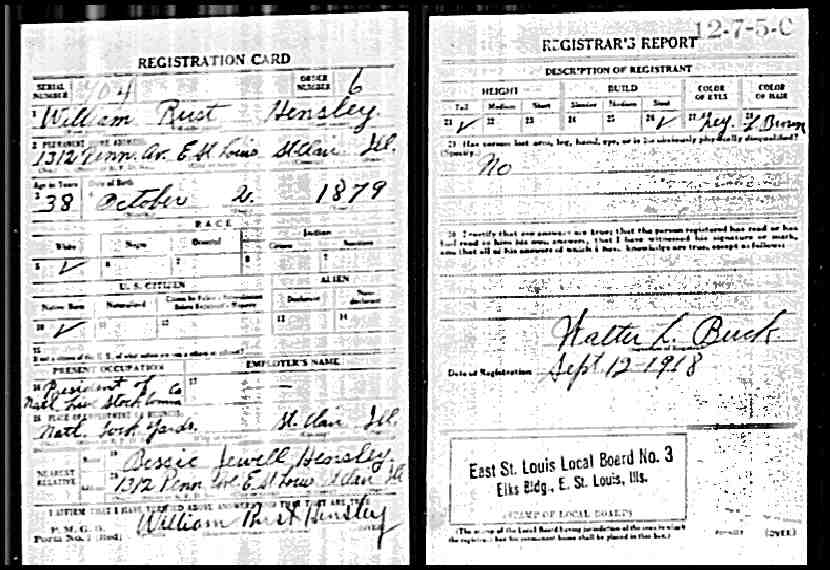 REGISTRATION CARD
SERIAL NUMBER 704 ORDER NUMBER 6
1 William Rust Hensley.
2 PERMANENT HOME ADDRESS:
1312 Penn. Av. E St Louis St. Clair Ill.
Age in Years Date of Birth
3 38 4 October 2. 1879
RACE
White Negro Oriental Indian
Citizen Noncitizen
5 ✓ 6 7 8
U. S. CITIZEN ALIEN
Native Born Naturalized Citizen by Father's Naturalization Before Registrant's Majority Declarant Non-declarant
10 ✓ 11 12 13 14
15
If not a citizen of the U. S., of what nation are you a citizen or subject?
PRESENT OCCUPATION EMPLOYER'S NAME
16 President of Co 17 —
Natl Live Stock Comm
18 PLACE OF EMPLOYMENT OR BUSINESS:
Natl. Stock Yards. St. Clair Ill.
NEAREST RELATIVE
Name 19 Bessie Jewell Hensley.
Address 20 1312 Penn Ave E St Louis St Clair Ill
I AFFIRM THAT I HAVE VERIFIED ABOVE ANSWERS AND THAT THEY ARE TRUE
P. M. G. O.
Form No. 1 (Red) William Rust Hensley
12-7-5-C
REGISTRAR'S REPORT
DESCRIPTION OF REGISTRANT
HEIGHT BUILD COLOR OF EYES COLOR OF HAIR
Tall Medium Short Slender Medium Stout
21 ✓ 22 23 24 25 26 ✓ 27 Grey. 28 L Brown
29 Has person lost arm, leg, hand, eye, or is he obviously physically disqualified?
(Specify.)
No
30 I certify that my answers are true; that the person registered has read or has
had read to him his own answers; that I have witnessed his signature or mark,
and that all of his answers of which I have knowledge are true, except as follows:
Walter L. Buck.
Date of Registration Sept. 12-1918
East St. Louis Local Board No. 3
Elks Bldg., E. St. Louis, Ills.
(STAMP OF LOCAL BOARD)
(The stamp of the Local Board having jurisdiction of the area in which
the registrant has his permanent home shall be placed in this box.)
(OVER)